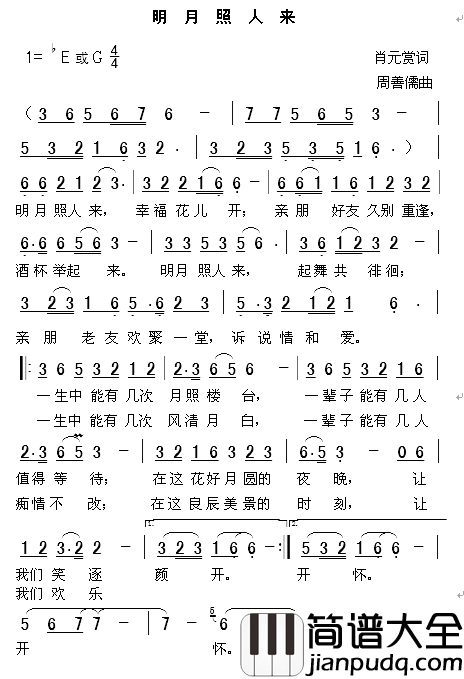 明月照人来
1= ♭E 或 G 4/4 肖元赏词
周善儒曲
( 3 6 5 6 7 6 - | 7 7 5 6 5 -
5 3 2 1 6 3 2 · | 3 2 3 5 5 1 6 · )
6 6 2 1 2 3 · | 3 2 2 1 6 6 - | 6 6 1 1 6 3 2 1 2
明月照人来， 幸福花儿开；亲朋 好友久别重逢，
6 · 6 6 5 6 3 - | 3 3 3 2 3 - | 3 6 1 2 3 2 -
酒杯举起 来。 明月照人来， 起舞共 徘徊；
亲朋 老友欢聚一堂，诉说情和爱。
3 6 5 3 2 1 2 | 2 · 3 6 5 6 - | 3 6 5 3 2 1 6
一生中能有几次 月照楼台， 一辈子能有几人
一生中能有几次 风清月白， 一辈子能有几人
2 · 3 6 5 3 - | 3 2 1 6 3 2 3 | 6 · 5 3 - 0 6
值得等待； 在这花好月圆的 夜晚， 让
痴情不改；在这良辰美景的 时刻，让
1 2 3 · 2 2 - | 3 2 3 1 6 6 - :| 3 2 3 1 6 6 -
我们笑逐 颜 开。 开 怀。
我们欢乐
5 6 7 7 - | 7 - 6
开 怀。
简谱大全
jianpudq.com